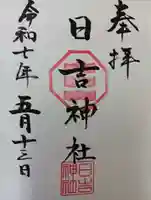 奉拝
日吉神社
令和七年五月十三日
日吉
神社